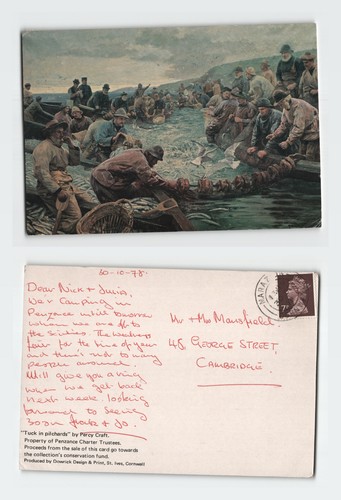 10-10-78.
Dear Nick & Julia,
We're Camping in
Penzance until tomorrow
whom we are off to
the Scillies. The weathers
fair for the time of year
and there's not to many
people around.
Will give you a ring
when we get back
next week. looking
forward to seeing
soon
Mr & Mrs Mansfield,
45 GEORGE STREET,
CAMBRIDGE.
7P
"Tuck in pilchards" by Percy Craft.
Property of Penzance Charter Trustees.
Proceeds from the sale of this card go towards
the collection's conservation fund.
Produced by Dowrick Design & Print, St. Ives, Cornwall